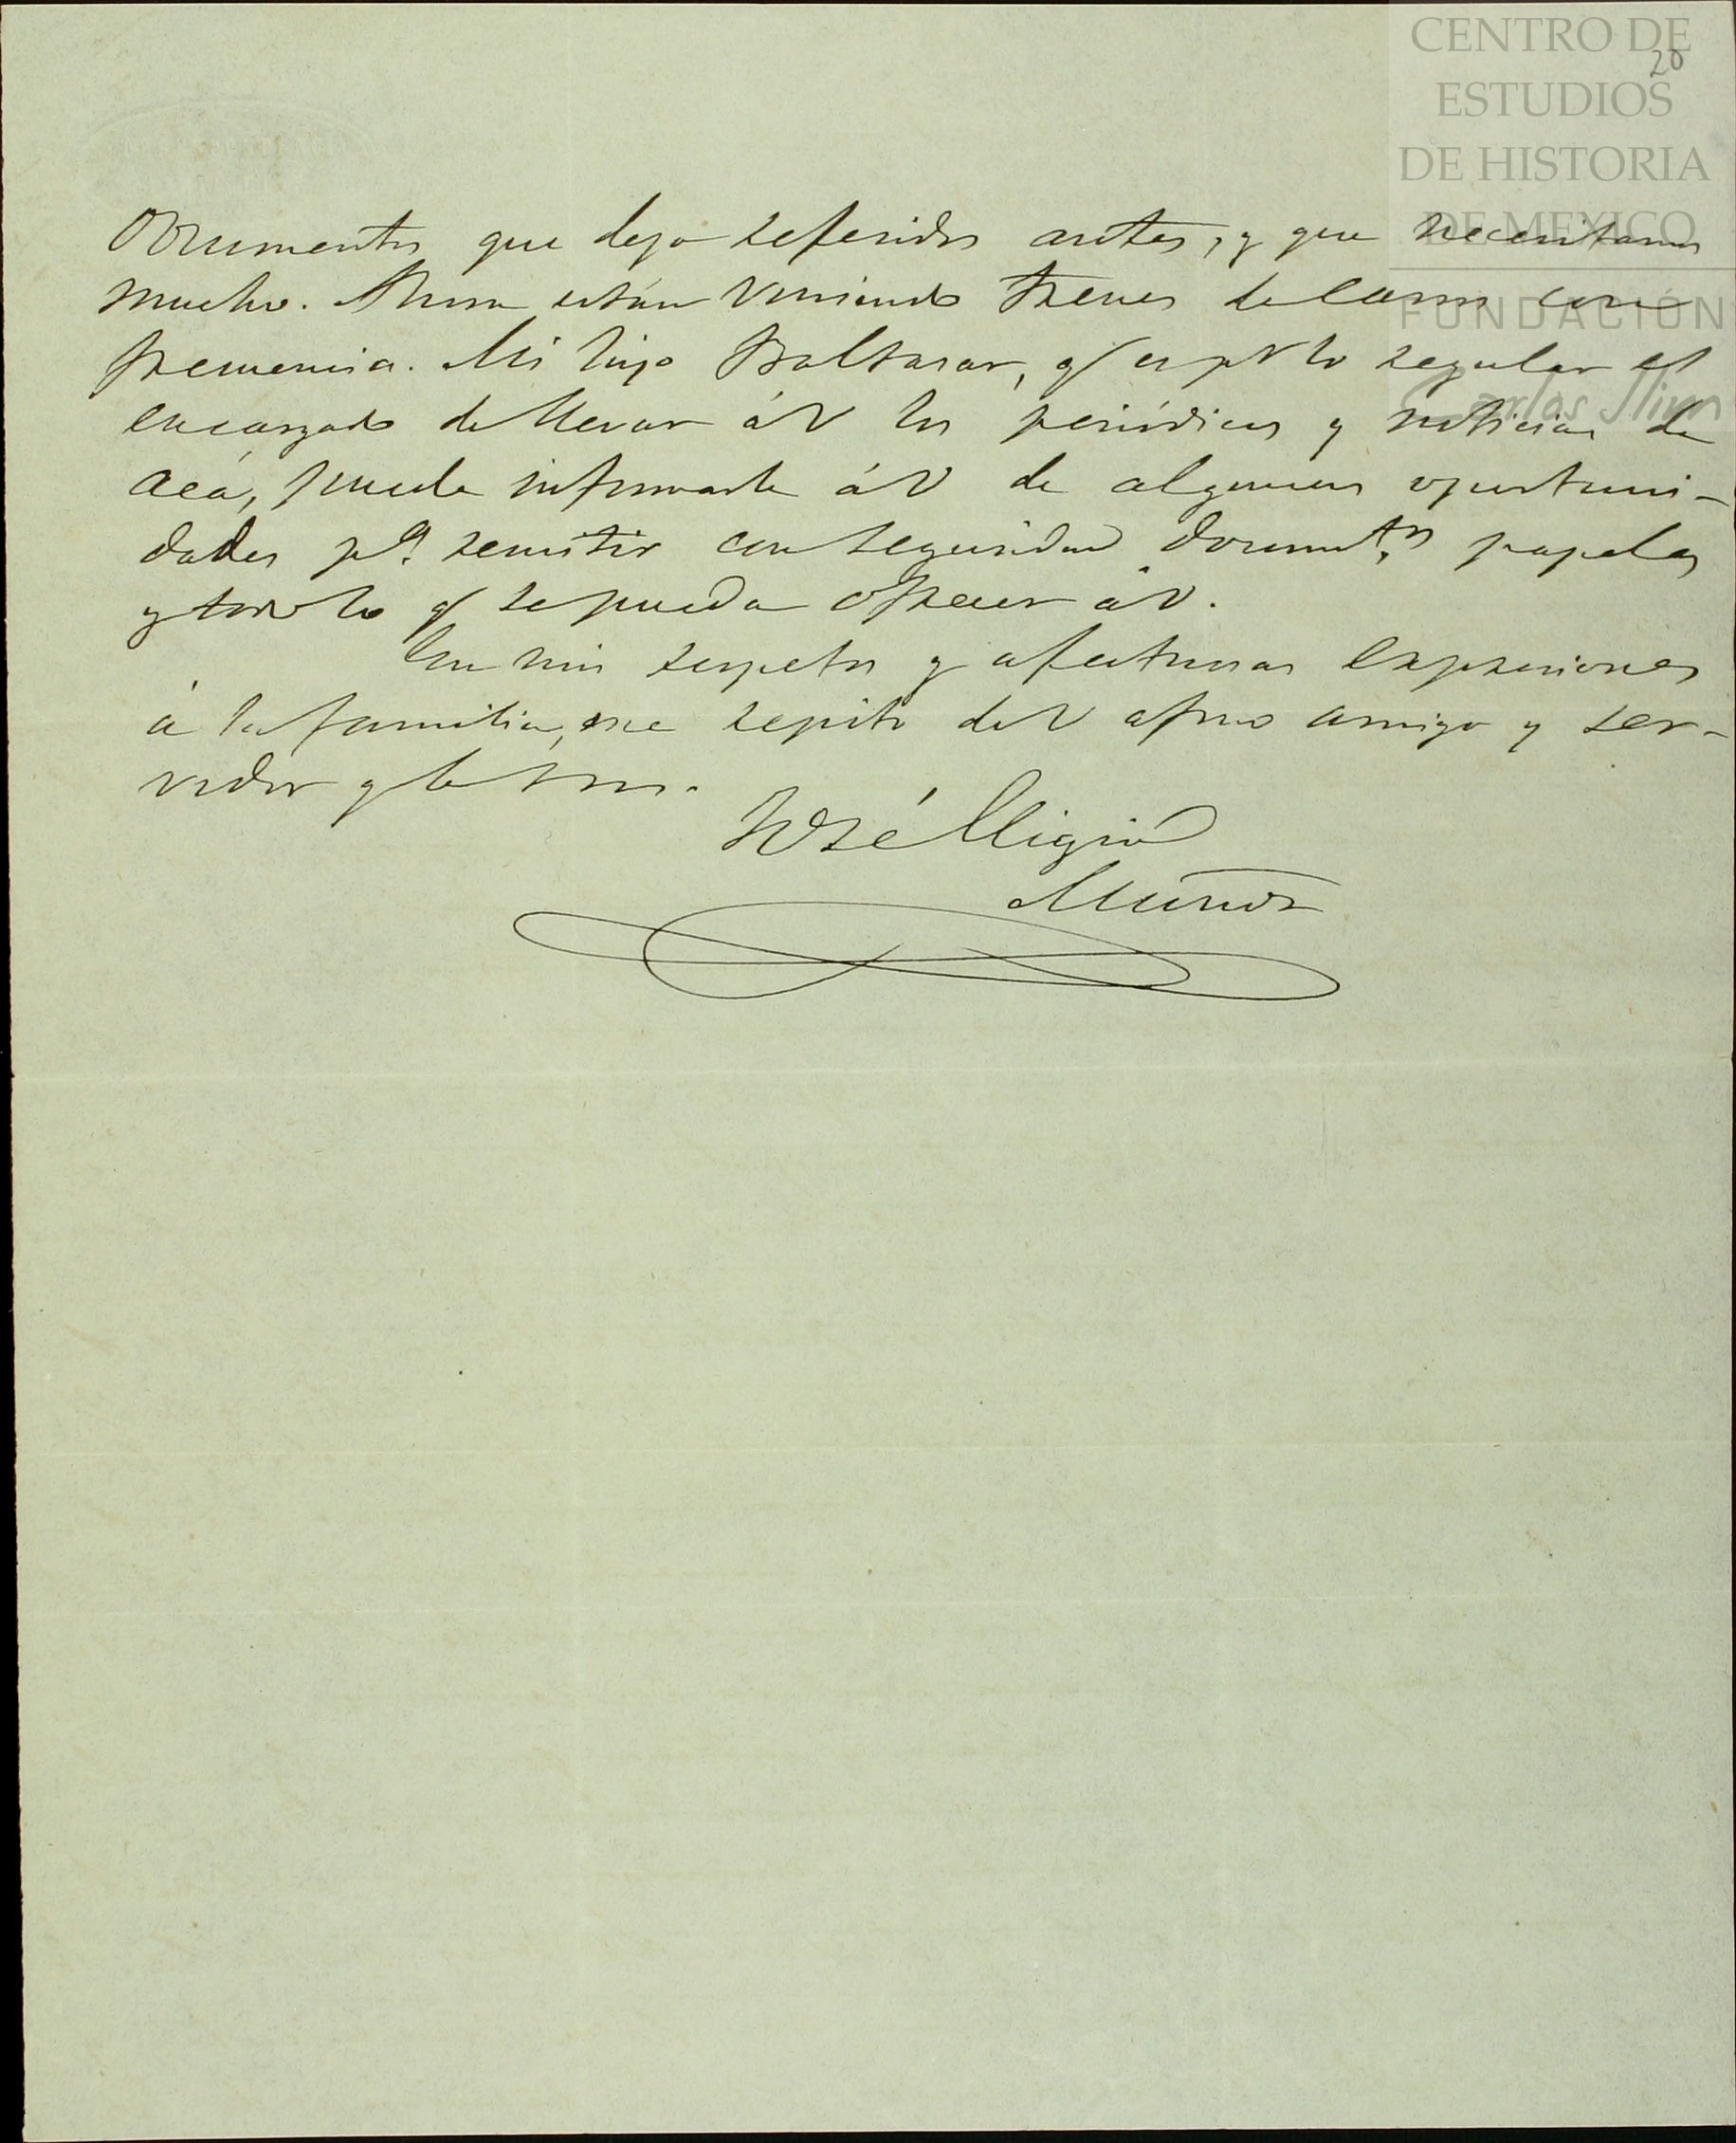 CENTRO DE
20
ESTUDIOS
DE HISTORIA
DE MEXICO
FUNDACIÓN
Carlos Slim
Documentos que dejo referidos antes, y que necesitamos
mucho. Ahora están viniendo trenes de carros con
frecuencia. Mi hijo Baltasar, q/ es pr lo regular el
encargado de llevar á V los periódicos y noticias de
acá, puede informarle á V de algunas oportuni-
dades pa. remitir con seguridad documtos. papeles
y todo lo q/ se pueda ofrecer á V.
Con mis respetos y afectuosas expresiones
á la familia, me repito de V afmo amigo y ser-
vidor
José Eligio
Muñoz